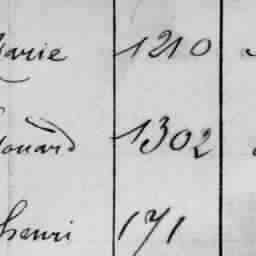 Marie 1210
douard 1302
henri 171